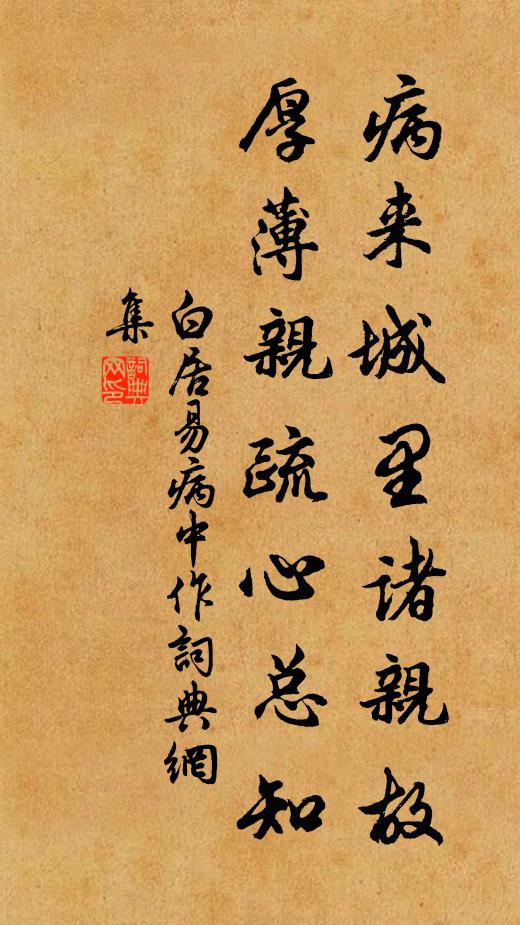 病来城里諸親故
厚薄親疏心总知
白居易病中作詞典網
集
詞典网印